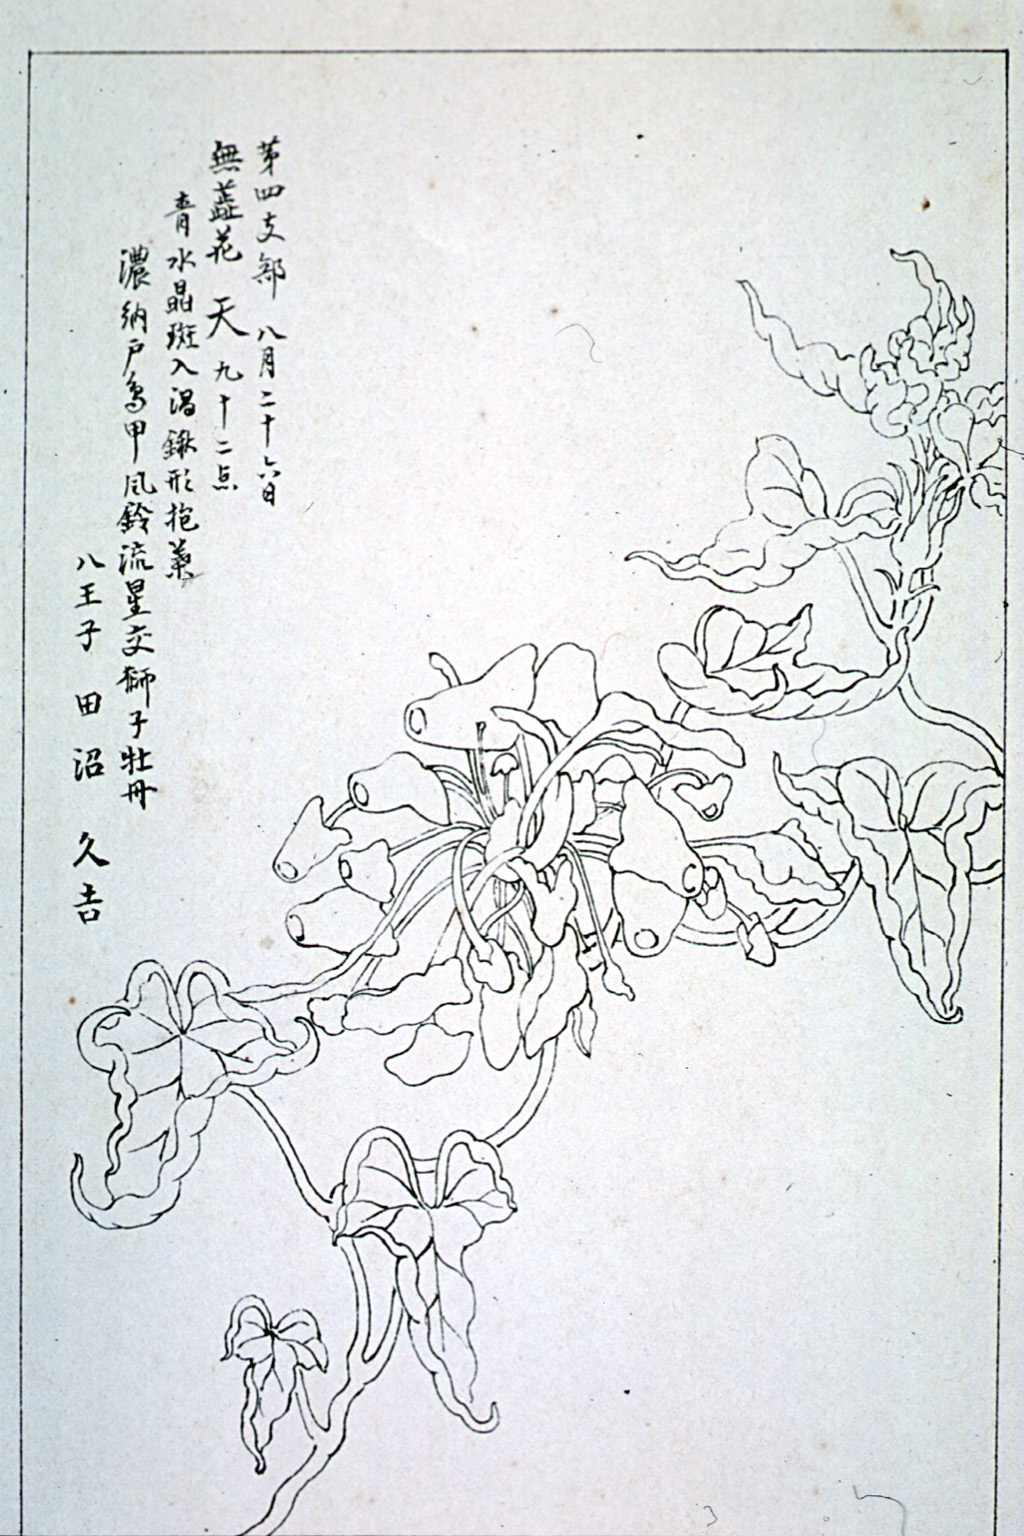 第四支部 八月二十六日
無蓋花 天 九十二点
青水晶斑入渦鍬形抱葉
濃納戸鳥甲風鈴流星交獅子牡丹
八王子 田沼 久吉